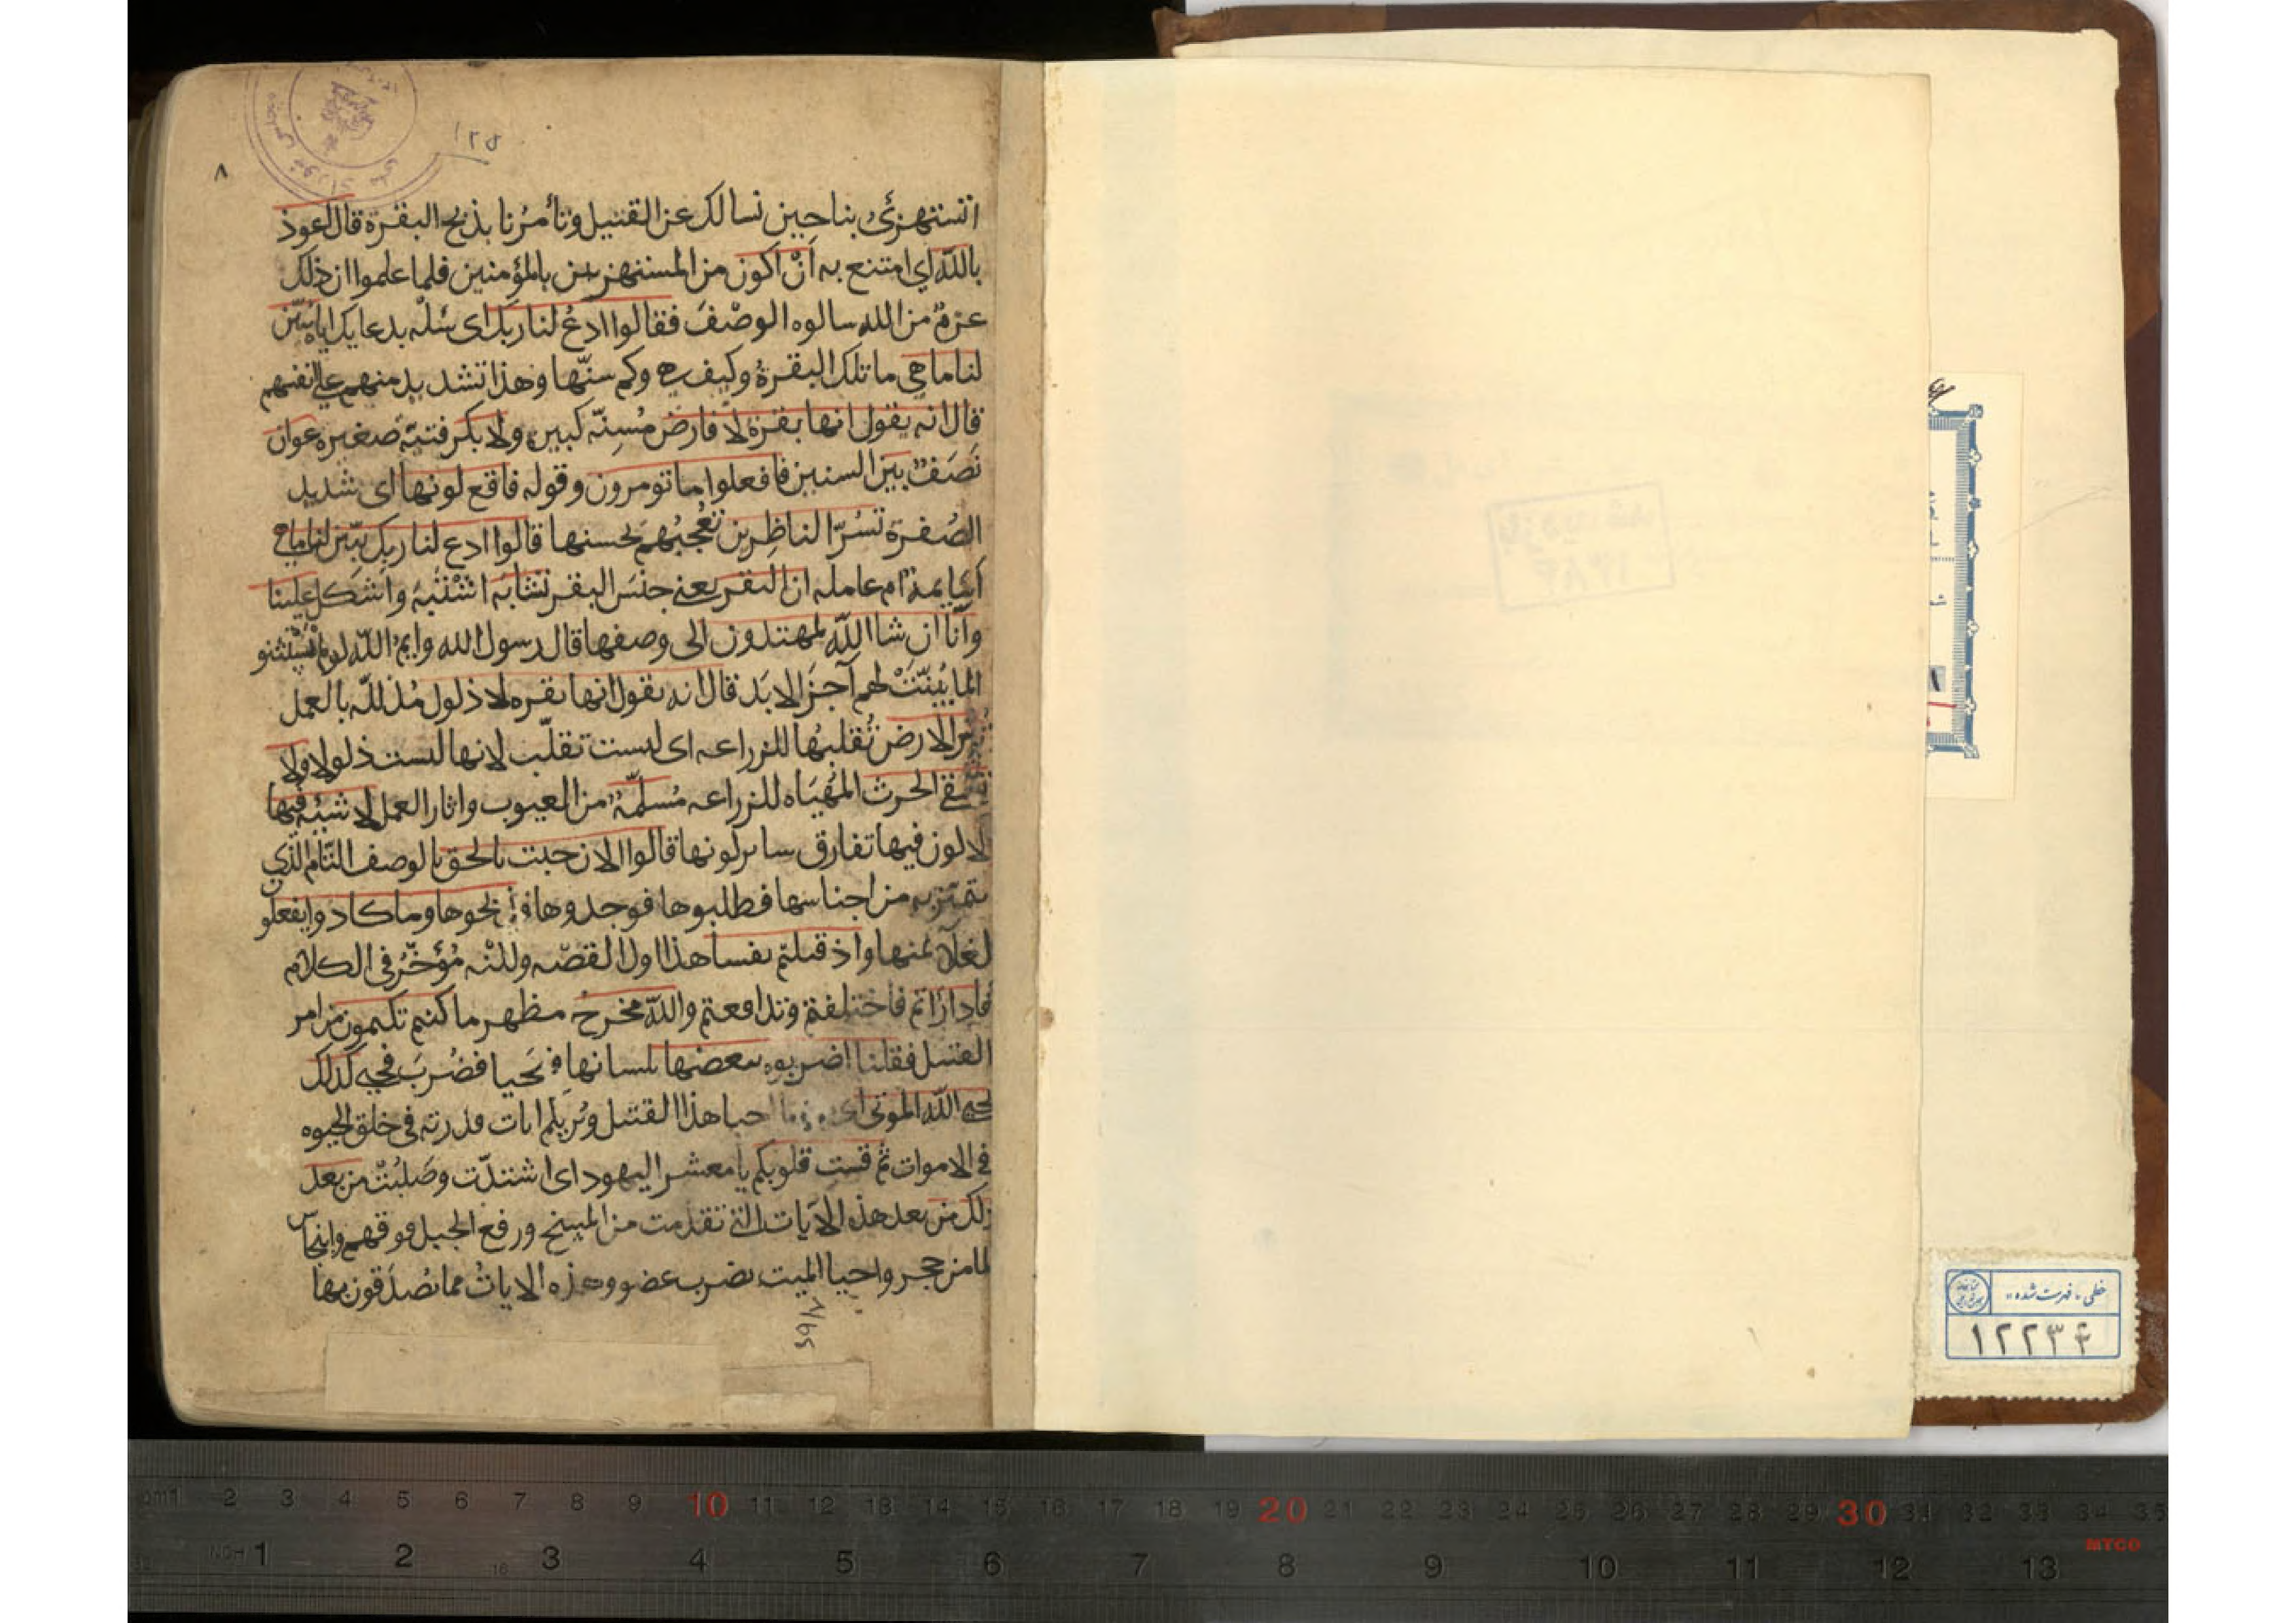 ١٢٥
٨
اتستهزئ بنا حين نسالك عن القتيل وتأمرنا بذبح البقرة قال اعوذ
بالله اي امتنع به ان اكون من المستهزين بالمؤمنين فلما علموا ان ذلك
عزم من الله سالوه الوصف فقالوا ادع لنا ربك اى سله بدعايك اياه يبين
لنا ما هي ما تلك البقرة وكيف هي وكم سنها وهذا تشديد منهم على انفسهم
قال انه يقول انها بقرة لا فارض مسنة كبيرة ولا بكر فتية صغيرة عوان
نصف بين السنين فافعلوا ما تومرون وقوله فاقع لونها اى شديد
الصفرة تسر الناظرين تعجبهم بحسنها قالوا ادع لنا ربك يبين لنا ما هي
اسايمة ام عامله ان البقر يعني جنس البقر تشابه اشتبه واشكل علينا
وانا ان شا الله لمهتدون الى وصفها قال رسول الله وايم الله لو لم يستثنو
لما بينت لهم آخر الابد قال انه يقول انها بقره لا ذلول مذللة بالعمل
تثير الارض تقلبها للزراعه اى ليست تقلب لانها ليست ذلولا ولا
تسقي الحرث المهياه للزراعه مسلمة من العيوب واثار العمل لا شية فيها
لا لون فيها تفارق ساير لونها قالوا الان جيت بالحق بالوصف التام الذي
تتميز به من اجناسها فطلبوها فوجدوها فذبحوها وما كادوا يفعلون
لغلاء ثمنها واذ قتلتم نفسا هذا اول القصه ولكنه مؤخر في الكلام
فادارأتم فاختلفتم وتدافعتم والله مخرج مظهر ما كنتم تكتمون من امر
القتيل فقلنا اضربوه ببعضها بلسانها فيحيا فضرب فحيي كذلك
يحيي الله الموتى اى كما احيا هذا القتيل ويريكم ايات قدرته في خلق الحيوه
في الاموات ثم قست قلوبكم يا معشر اليهود اى اشتدت وصلبت من بعد
ذلك من بعد هذه الايات التي تقدمت من المسخ ورفع الجبل فوقهم وانبجاس
الما من حجر واحيا الميت بضرب عضو وهذه الايات مما تصدقون بها
خطی «فهرست شده»
١٢٢٣۴
cm 1 2 3 4 5 6 7 8 9 10 11 12 13 14 15 16 17 18 19 20 21 22 23 24 25 26 27 28 29 30 31 32 33 34 35
MYCO
INCH 1 2 3 4 5 6 7 8 9 10 11 12 13